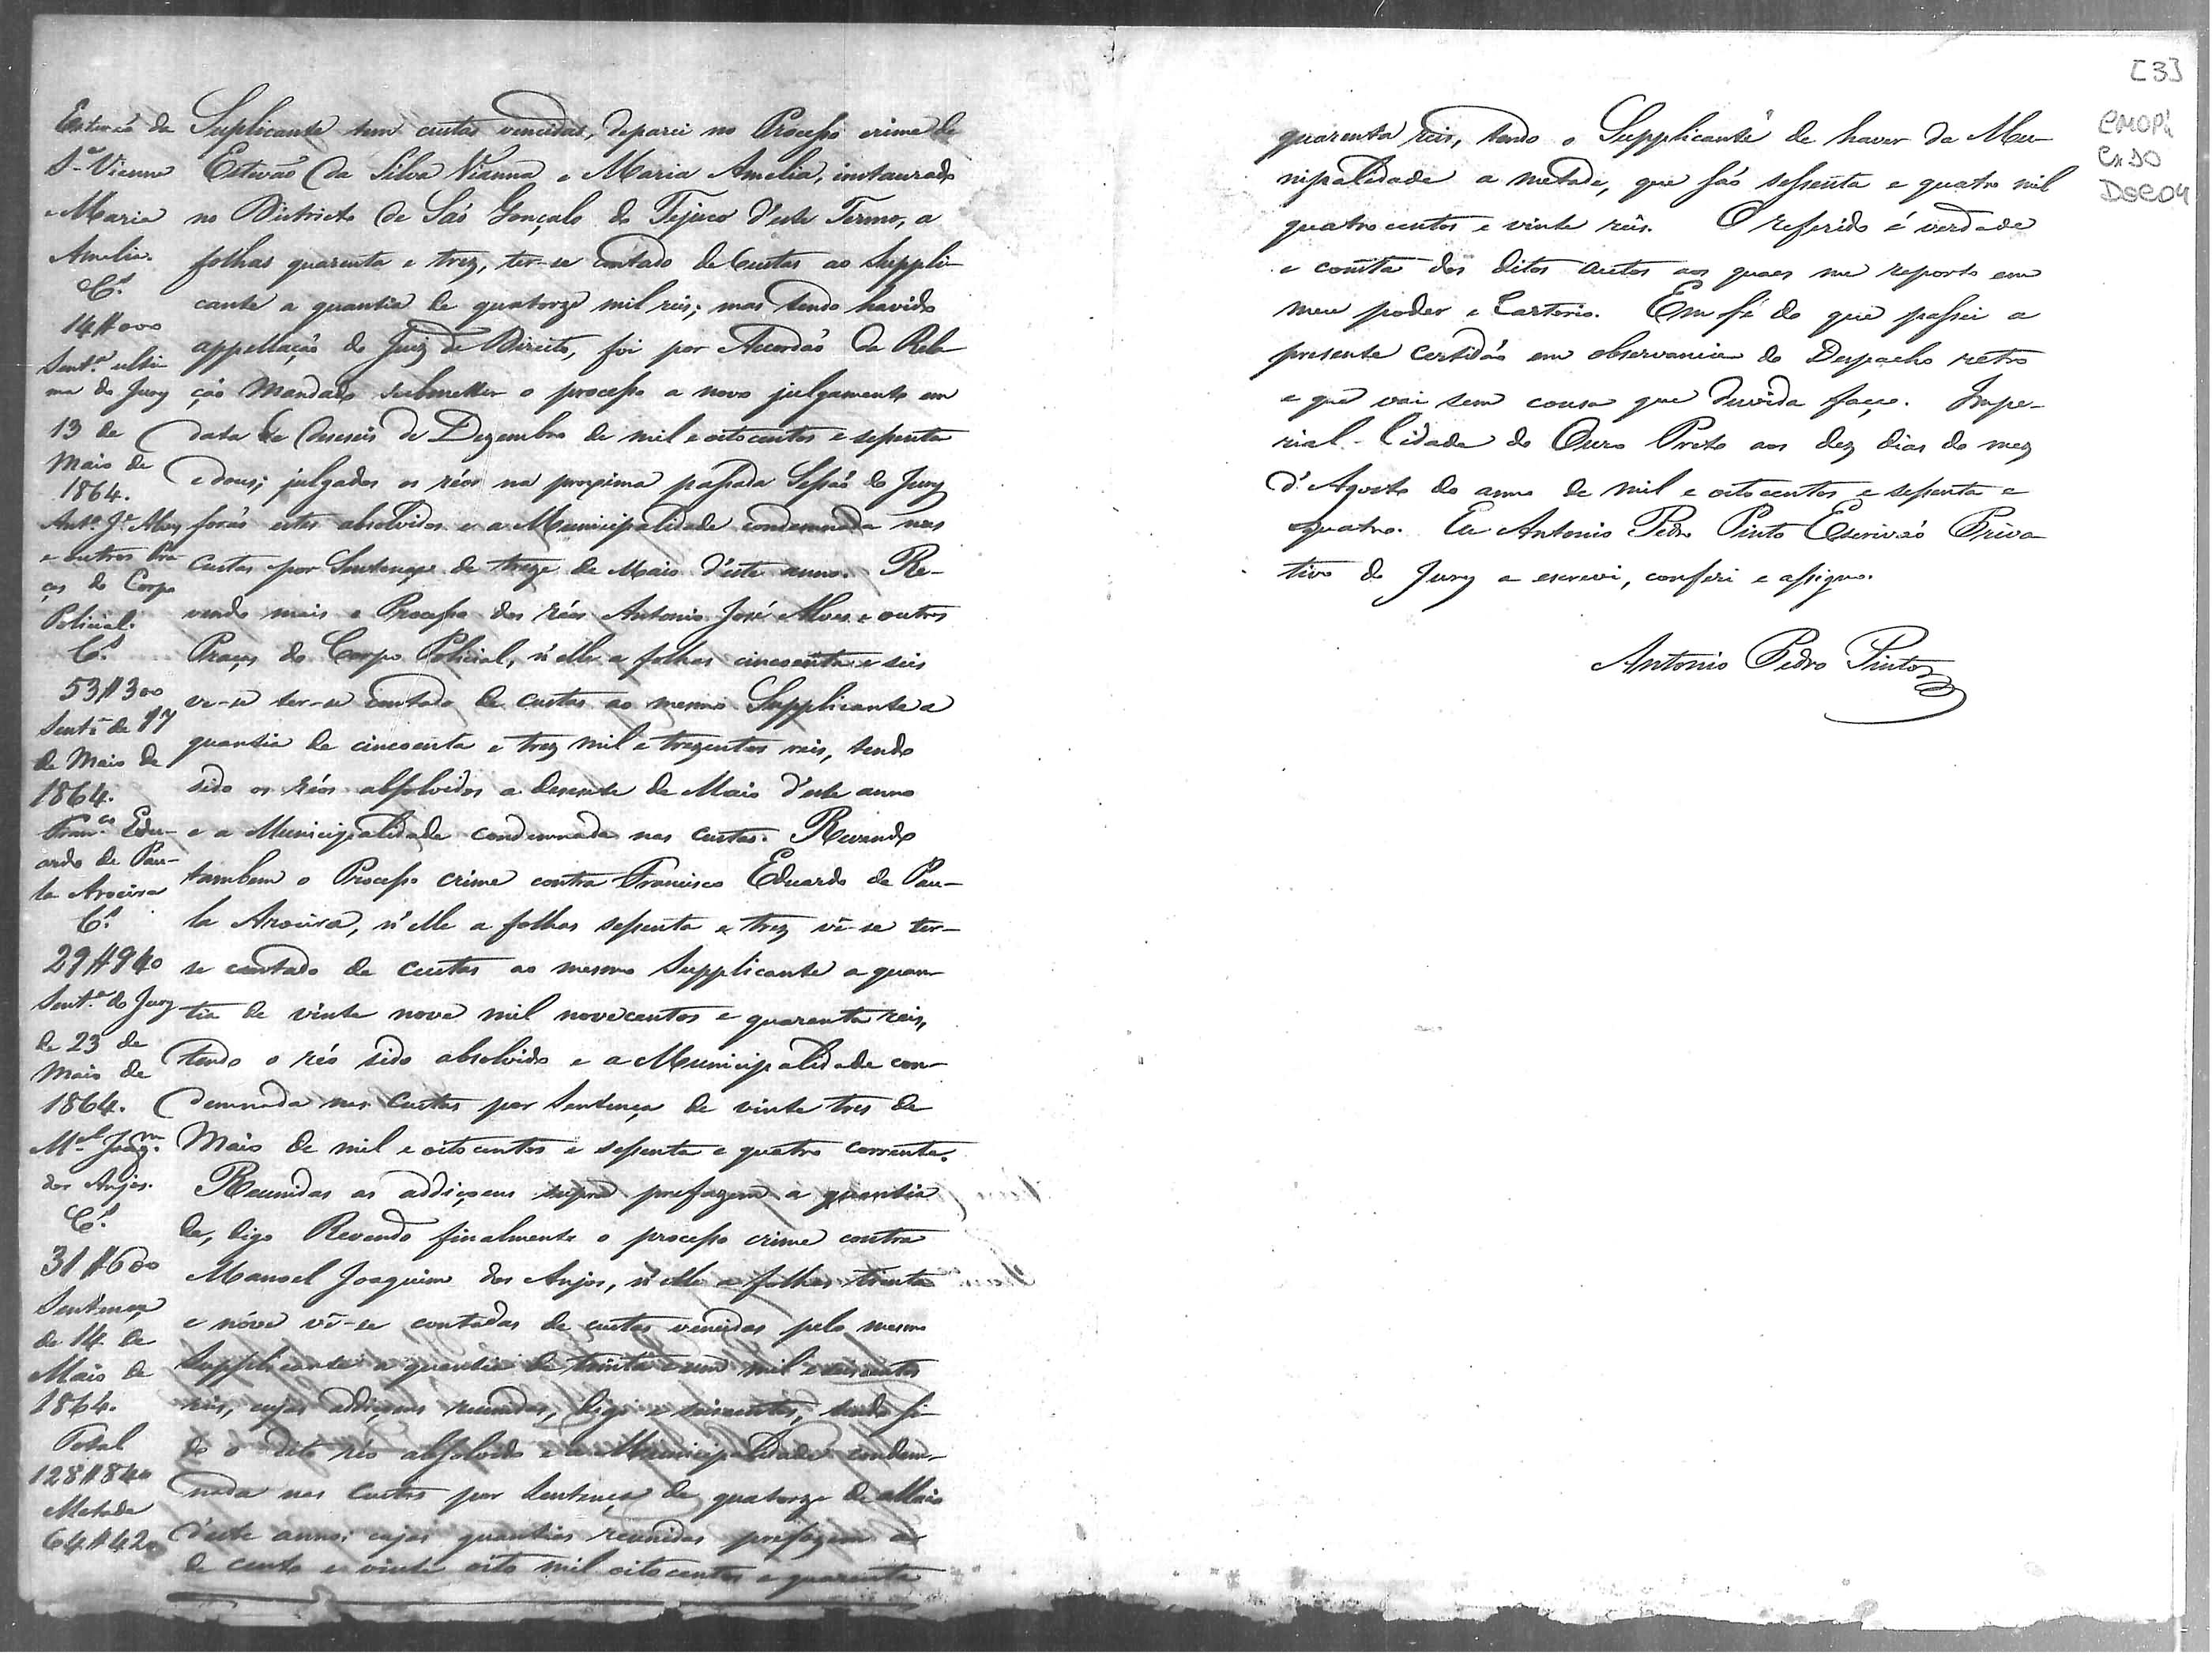 [3]
CMOP
Cx 50
Doc 04
Estevão da
Sª Vianna
Maria
Amelia.
Cs.
14$000
Sentª ulti
ma do Jury
13 de
Maio de
1864.
Antº Jé Alvz
e outros Pra
ças do Corpo
Policial.
Cs.
53$300
Sentª de 17
de Maio de
1864.
Franco Edu-
ardo de Pau-
la Aroeira
Cs.
29$940
Sentª do Jury
de 23 de
Maio de
1864.
Mel Joaqm
dos Anjos.
Cs.
31$600
Sentença
de 14 de
Maio de
1864.
Total
128$840
Metade
64$420
Suplicante tem custas vencidas, deparei no Processo crime de
Estevão da Silva Vianna e Maria Amelia, instaurado
no Districto de São Gonçalo do Tejuco d'este Termo, a
folhas quarenta e trez, ter-se contado de Custas ao Suppli-
cante a quantia de quatorze mil reis; mas tendo havido
appellação do Juiz de Direito, foi por Accordão da Rela-
ção Mandado submetter o processo a novo julgamento em
data de deseseis de Dezembro de mil e oitocentos e sessenta
e dous; julgados os réos na proxima passada Sessão do Jury
forão estes absolvidos e a Municipalidade condemnada nas
Custas por Sentença de treze de Maio d'este anno. Re-
vendo mais o Processo dos réos Antonio José Alves e outros
Praças do Corpo Policial, n'elle a folhas cincoenta e seis
vê-se ter-se contado de custas ao mesmo Supplicante a
quantia de cincoenta e trez mil e trezentos reis, tendo
sido os réos absolvidos a desesete de Maio d'este anno
e a Municipalidade condemnada nas custas. Revendo
tambem o Processo crime contra Francisco Eduardo de Pau-
la Aroeira, n'elle a folhas sessenta e trez vê-se ter-
se contado de custas ao mesmo Supplicante a quan-
tia de vinte nove mil novecentos e quarenta reis,
tendo o réo sido absolvido e a Municipalidade con-
demnada nas Custas por Sentença de vinte tres de
Maio de mil e oito centos e sessenta e quatro corrente.
Reunidas as addiçoens supra prefazem a quantia
de, digo Revendo finalmente o processo crime contra
Manoel Joaquim dos Anjos, n'elle a folhas trinta
e nóve vê-se contadas de custas vencidas pelo mesmo
Supplicante a quantia de trinta e um mil e seiscentos
reis, cujas addiçoens reunidas, digo e seiscentos, tendo si-
do o dito réo absolvido e a Municipalidade condem-
nada nas Custas por Sentença de quatorze de Maio
d'este anno; cujas quantias reunidas prefazem a
de cento e vinte oito mil oitocentos e quarenta
quarenta reis, tendo o Supplicante de haver da Mu-
nicipalidade a metade, que são sessenta e quatro mil
quatrocentos e vinte reis. O referido é verdade
e consta dos ditos autos aos quaes me reporto em
meu poder e Cartorio. Em fé do que passei a
presente certidão em observancia do Despacho retro
e que vai sem cousa que duvida faça. Impe-
rial Cidade do Ouro Preto aos dez dias do mez
d'Agosto do anno de mil e oitocentos e sessenta e
quatro. Eu Antonio Pedro Pinto Escrivão Priva-
tivo do Jury a escrevi, conferi e assigno.
Antonio Pedro Pinto